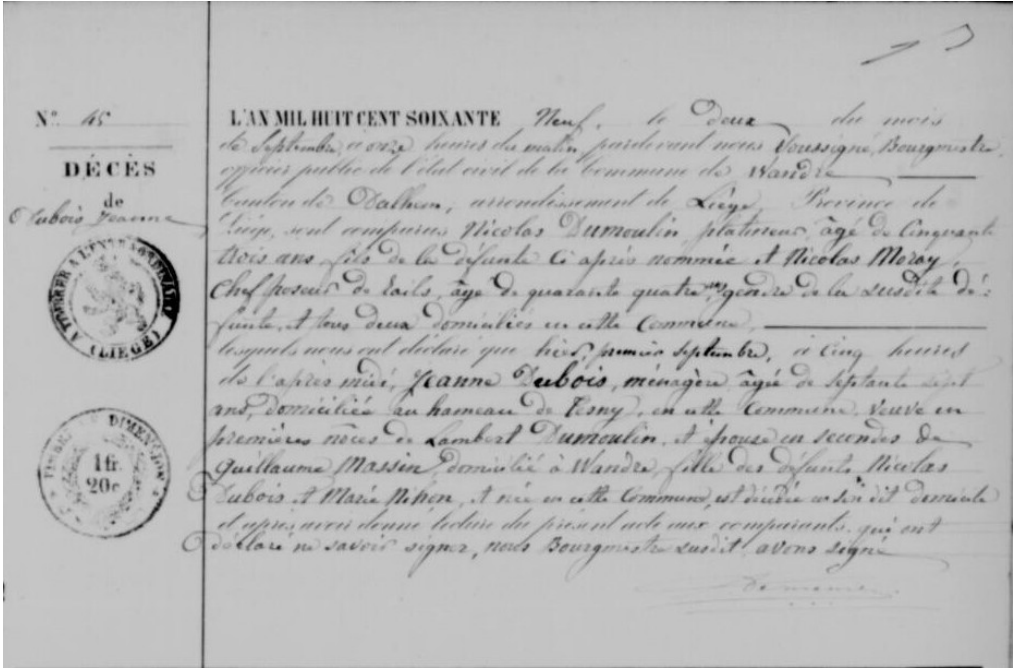 N.º 45
DÉCÈS
de
Dubois Jeanne
TIMBRE A L'EXTRAORDINAIRE
(LIÉGE)
TIMBRE DE DIMENSION
1 fr.
20 c
L'AN MIL HUIT CENT SOIXANTE Neuf, le deux du mois
de Septembre, à onze heures du matin, pardevant nous Soussigné, Bourgmestre,
officier public de l'état civil de la Commune de Wandre
Canton de Dalhem, arrondissement de Liége, Province de
Liége, sont comparus Nicolas Dumoulin, platineur, âgé de Cinquante
trois ans, fils de la défunte Ci après nommée et Nicolas Moray,
Chef poseur de rails, âgé de quarante quatre ans, gendre de la susdite dé-
funte, et tous deux domiciliés en cette Commune,
lesquels nous ont déclaré que hier, premier septembre, à Cinq heures
de l'après midi, Jeanne Dubois, ménagère, âgée de septante sept
ans, domiciliée au hameau de Tesny, en cette Commune, veuve en
premières noces de Lambert Dumoulin, et épouse en secondes de
Guillaume Massin, domicilié à Wandre, fille des défunts Nicolas
Dubois et Marie Nihon, et née en cette Commune, est décédée en son dit domicile
et après avoir donné lecture du présent acte aux comparants, qui ont
déclaré ne savoir signer, nous Bourgmestre susdit, avons signé